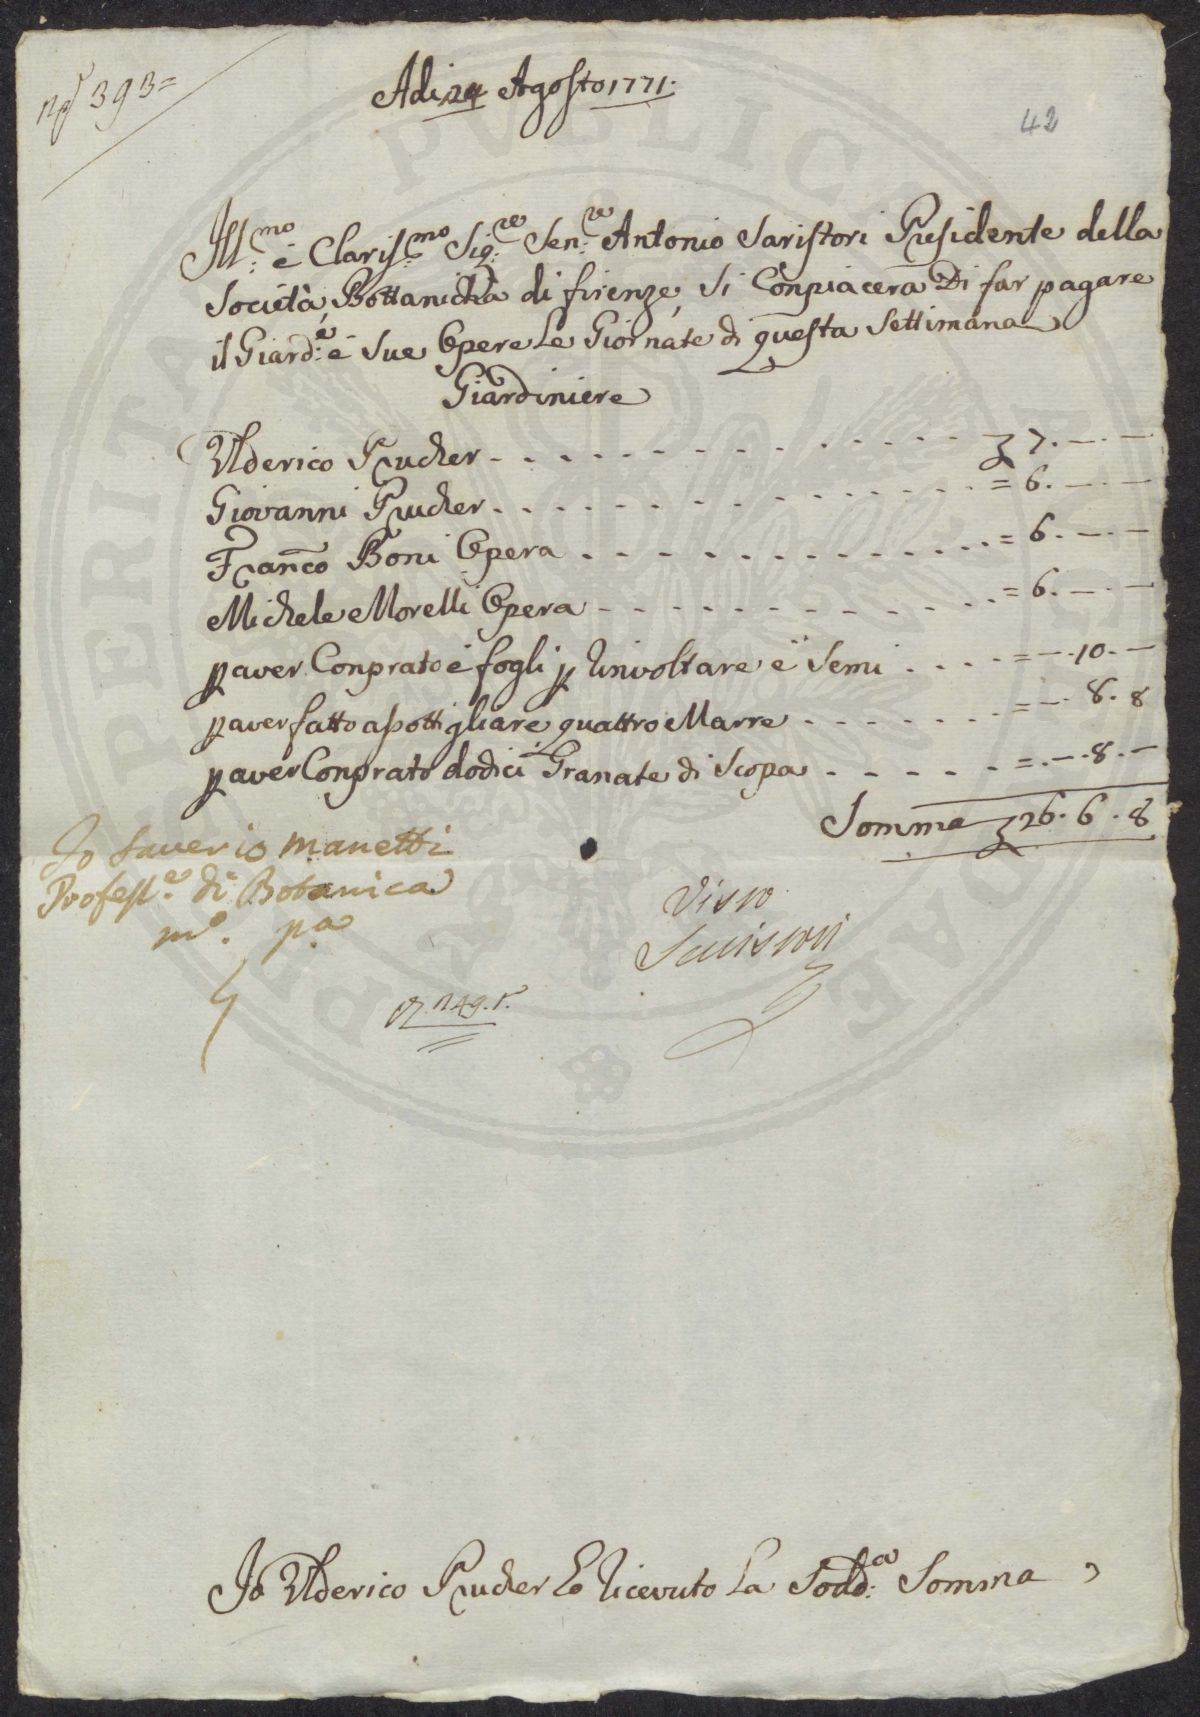 Nº 393=
Adi 24 Agosto 1771:
42
Ill:mo e Claris:mo Sig:re Sen:re Antonio Saristori Presidente della
Società Bottanicha di firenze, Si Conpiacerà Di far pagare
il Giard:e e Sue Opere Le Giornate di questa Settimana
Giardiniere
Ulderico Prucher - - - 7. —. —
Giovanni Prucher - - - = 6. —. —
Franco Boni Opera - - - = 6. —. —
Michele Morelli Opera - - - = 6. —. —
p aver Conprato é fogli p Rinvoltare e Semi - - - = —. 10. —
p aver fatto a bottigliare quattro Marre - - - = —. 8. 8
p aver Conprato dodici Granate di Scopa - - - = —. 8. —
Somma 26. 6. 8
Io Saverio Manetti
Profess:e di Botanica
mº. pa
Visto
Seristori
Io Ulderico Prucher Eo Ricevuto La Sodd:a Somma
PUBLICAE
PROSPERITATI